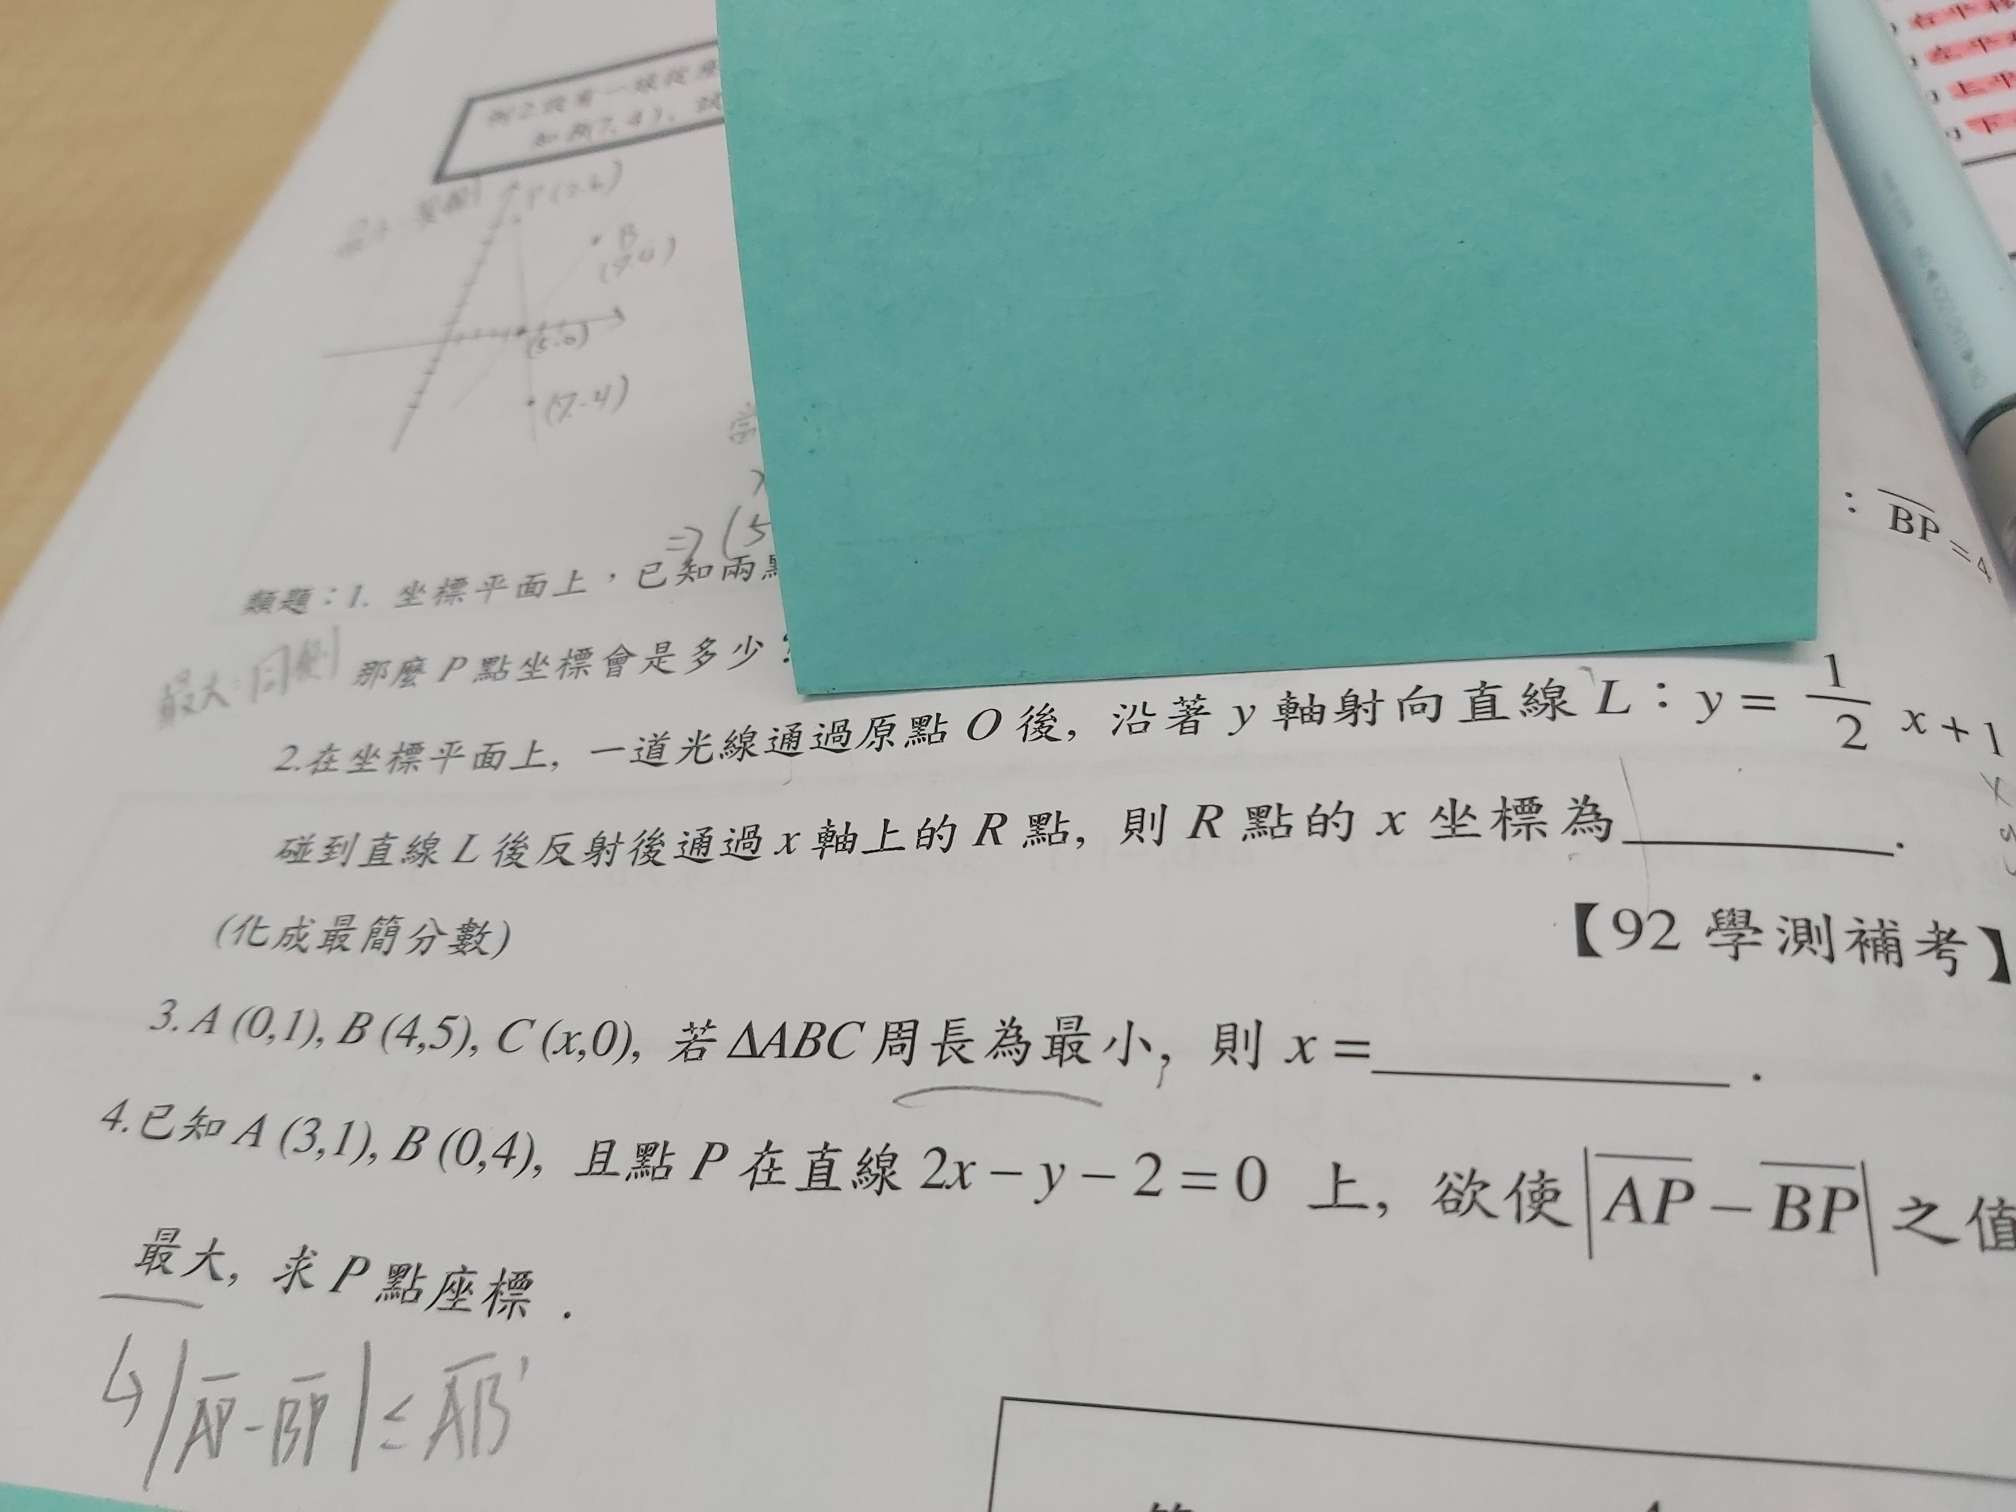 P(2.6)
B
(9.4)
(5.0)
(7.-4)
⇒(5
: BP=4
類題：1. 坐標平面上，已知兩
最大:同側 那麼 P 點坐標會是多少？
2.在坐標平面上, 一道光線通過原點 O 後, 沿著 y 軸射向直線 L：y = 1/2 x + 1
碰到直線 L 後反射後通過 x 軸上的 R 點, 則 R 點的 x 坐標為________.
(化成最簡分數)
【92 學測補考】
3. A (0,1), B (4,5), C (x,0), 若 ΔABC 周長為最小, 則 x =________.
4.已知 A (3,1), B (0,4), 且點 P 在直線 2x − y − 2 = 0 上, 欲使 |AP − BP| 之值
最大, 求 P 點座標．
↳|AP-BP|≤AB'